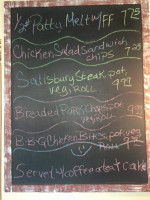 1/2# Patty Melt w/ FF 7.75
Chicken Salad Sandwich
chips 7.25
Salisbury Steak, pot,
veg, Roll 9.99
Breaded Pork Chops, pot
veg, roll 9.99
B-B-Q Chicken Bits, pot, veg
Roll 9.99
Served w/ coffee or tea & Cake